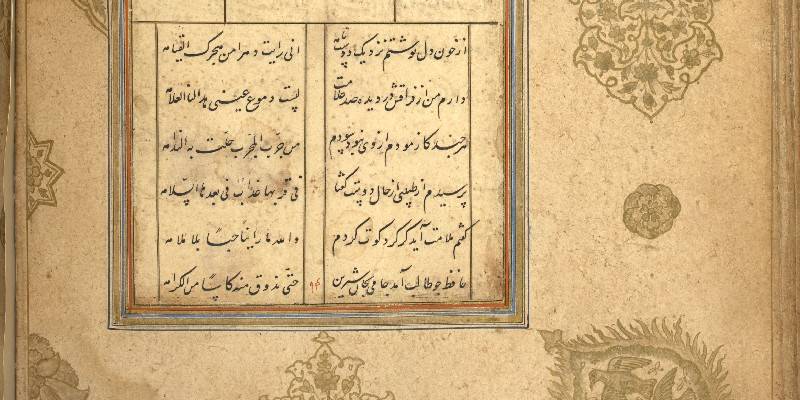 از خون دل نوشتم نزدیک دوست نامه انی رایت دهرا من هجرک القیامه
دارم من از فراقش در دیده صد علامت لیست دموع عینی هذا لنا العلامه
هر چند کازمودم از وی نبود سودم من جرّب المجرّب حلّت به الندامه
پرسیدم از طبیبی از حال دوست گفتا فی قربها عذاب فی بعدها السّلامه
گفتم ملامت آید گر گرد کوت گردم والله ما راینا حبّا بلا ملامه
حافظ چو طالب آمد جامی بجان شیرین حتّی یذوق منه کاسا من الکرامه